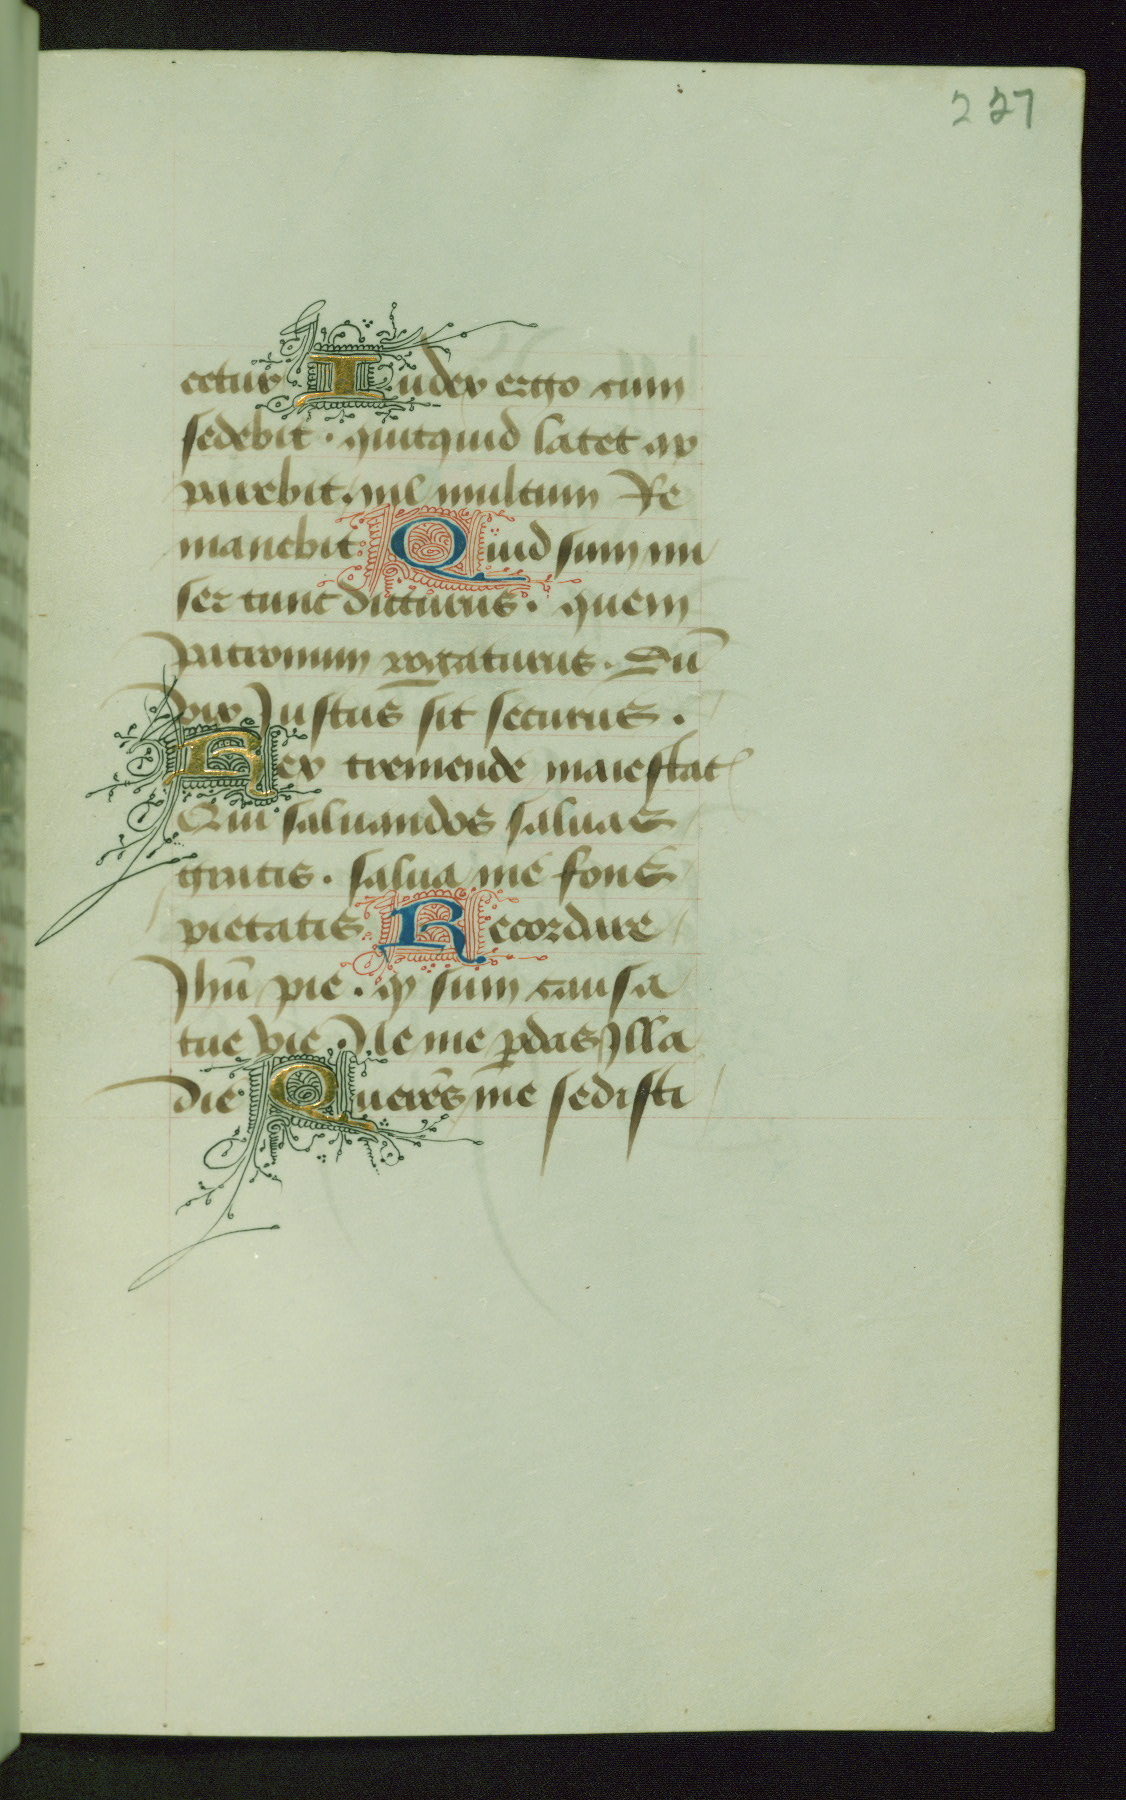 227
cetur Iudex ergo cum
sedebit. quitquid latet ap
parebit. nil multum Re
manebit Quid sum mi
ser tunc dicturus. quem
patronum rogaturus. Cū
vix Justus sit securus.
Rex tremende maiestat
Qui saluandos saluas
gratis. salua me fons
pietatis Recordare
Jhū pie. ꝙ sum causa
tue vie Ne me ꝑdas Jlla
die Querēs me sedisti